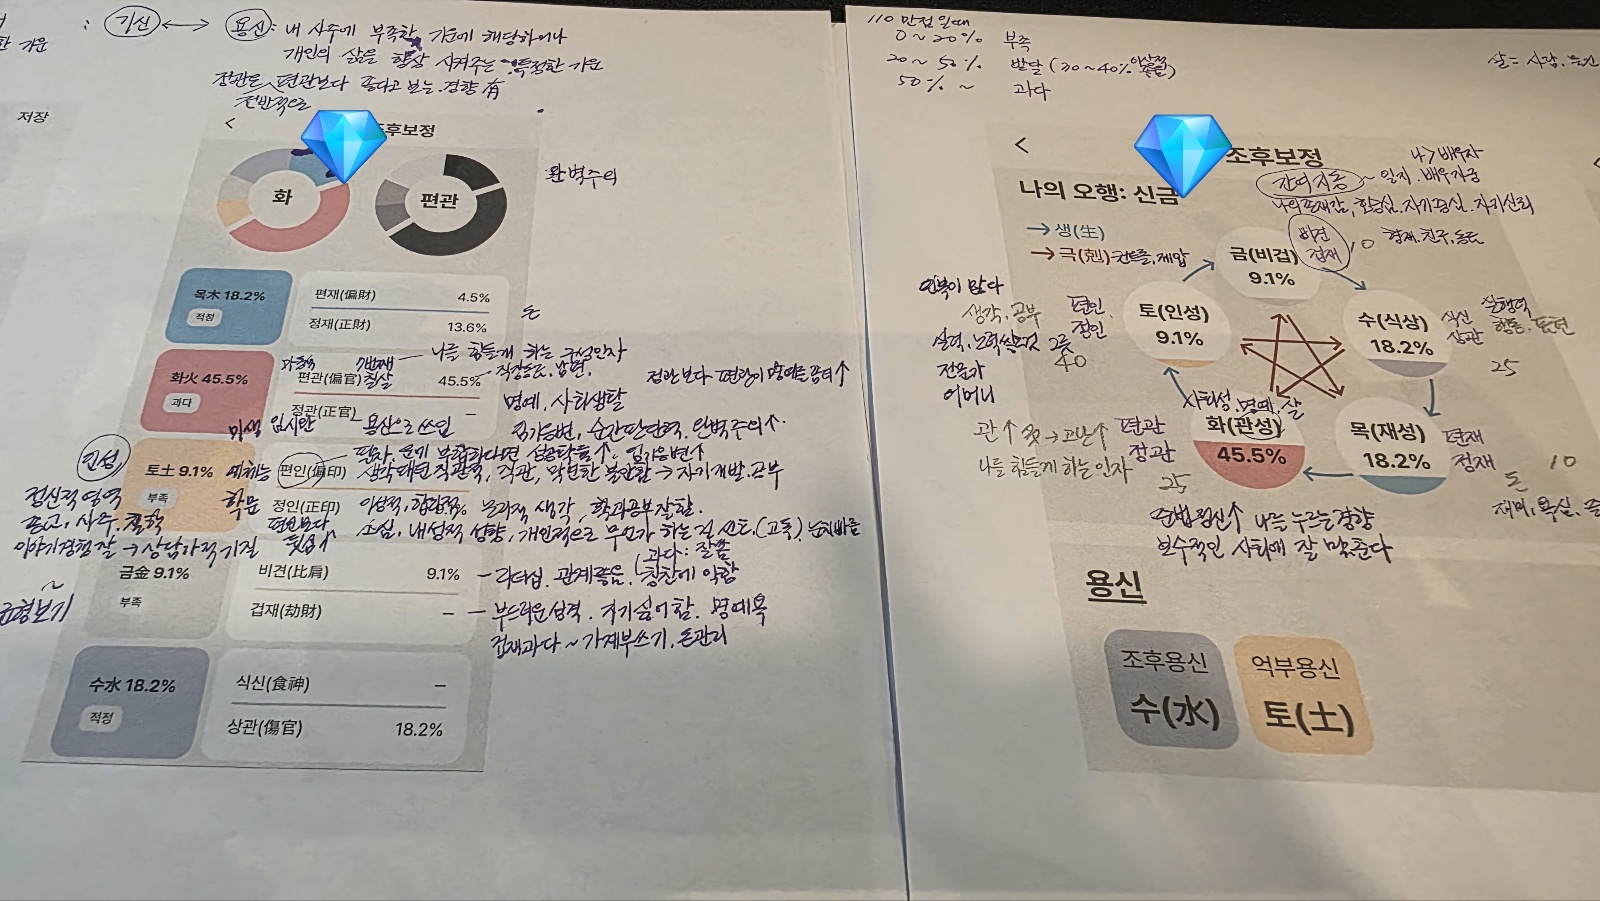 기신 ↔ 용신 : 내 사주에 부족한 기운에 해당하거나
개인의 삶을 향상 시켜주는 특정한 기운
정관은 편관보다 좋다고 보는 경향 有
전반적으로
저장
<
조후보정
화
편관
완벽주의
목木 18.2%
적정
편재(偏財) 4.5%
정재(正財) 13.6%
돈
나를 힘들게 하는 구성인자
화火 45.5%
과다
편관(偏官) 칠살 45.5%
직장동료, 남편,
정관보다 편관이 명예를 끌어↑
정관(正官) –
명예, 사회생활
용신으로 쓰임
임기응변, 순간판단력, 완벽주의↑
인성
토土 9.1%
부족
예체능
편인(偏印)
생각대면 직관적, 직관, 막연한 불안함 → 자기개발.공부
학문
정인(正印)
이성적, 합리적, 문과적 생각, 학과공부잘함.
편인보다
소심, 내성적 성향, 개인적으로 무언가 하는 걸 선호.(고독) 눈치빠름
정신적영역
종교, 사주, 철학
이야기경청 잘 → 상담가적 기질
금金 9.1%
부족
비견(比肩) 9.1%
리더십. 관계좋음. 칭찬에 약함
겁재(劫財) –
부드러운성격. 지기싫어함. 명예욕
겁재과다 ~ 가계부쓰기, 돈관리
수水 18.2%
적정
식신(食神) –
상관(傷官) 18.2%
110 만점일때
0 ~ 20% 부족
20 ~ 50% 발달 (30~40% 이상적)
50% ~ 과다
<
조후보정
나의 오행: 신금
간여지동 ~ 일지. 배우자궁
나 > 배우자
나의존재감, 확중심. 자기중심. 자기신뢰
→ 생(生)
→ 극(剋) 컨트롤, 제압
금(비겁)
9.1%
비견
겁재
10
형제.친구.동료
인복이 많다
생각, 공부
편인
정인
40
전문가
어머니
토(인성)
9.1%
수(식상)
18.2%
식신
상관
실행력
행동, 표현
25
사회성, 명예, 살
화(관성)
45.5%
편관
정관
25
관↑ 多 → 고난↑
나를 힘들게 하는 인자
목(재성)
18.2%
편재
정재
10
돈
준법정신↑ 나를 누르는경향
보수적인 사회에 잘 맞춘다
용신
조후용신
수(水)
억부용신
토(土)